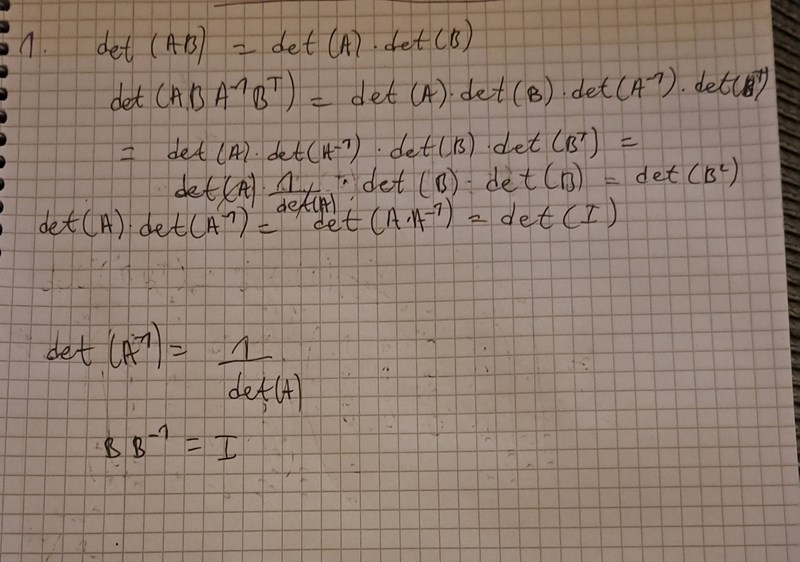 1. det (AB) = det (A) · det (B)
det (A B A⁻¹ Bᵀ) = det (A) · det (B) · det (A⁻¹) · det(Bᵀ)
= det (A) · det (A⁻¹) · det (B) · det (Bᵀ) =
det (A) · 1/det(A) · det (B) · det (B) = det (B²)
det (A) · det (A⁻¹) = det (A · A⁻¹) = det (I)
det (A⁻¹) = 1/det(A)
B B⁻¹ = I